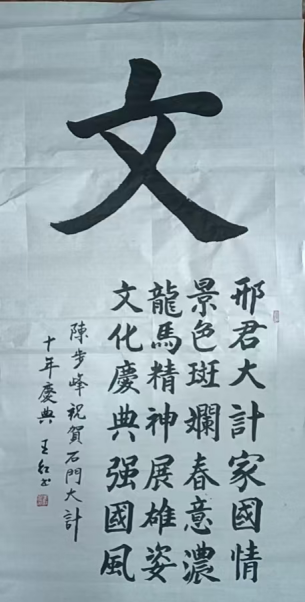 文
邢君大計家國情
景色斑斕春意濃
龍馬精神展雄姿
文化慶典强國風
陳步峰祝賀石門大計
十年慶典 王红书